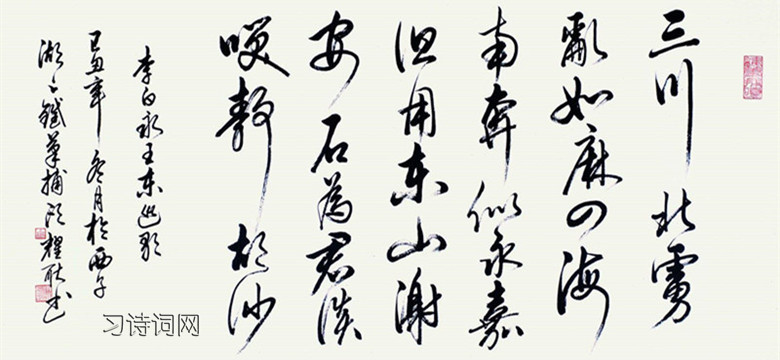 三川北虜
亂如麻四海
南奔似永嘉
但用东山謝
安石為君谈
笑静胡沙
李白永王东巡歌
己丑年冬月於西子
湖上鐵筆捕耀耿书
习诗词网